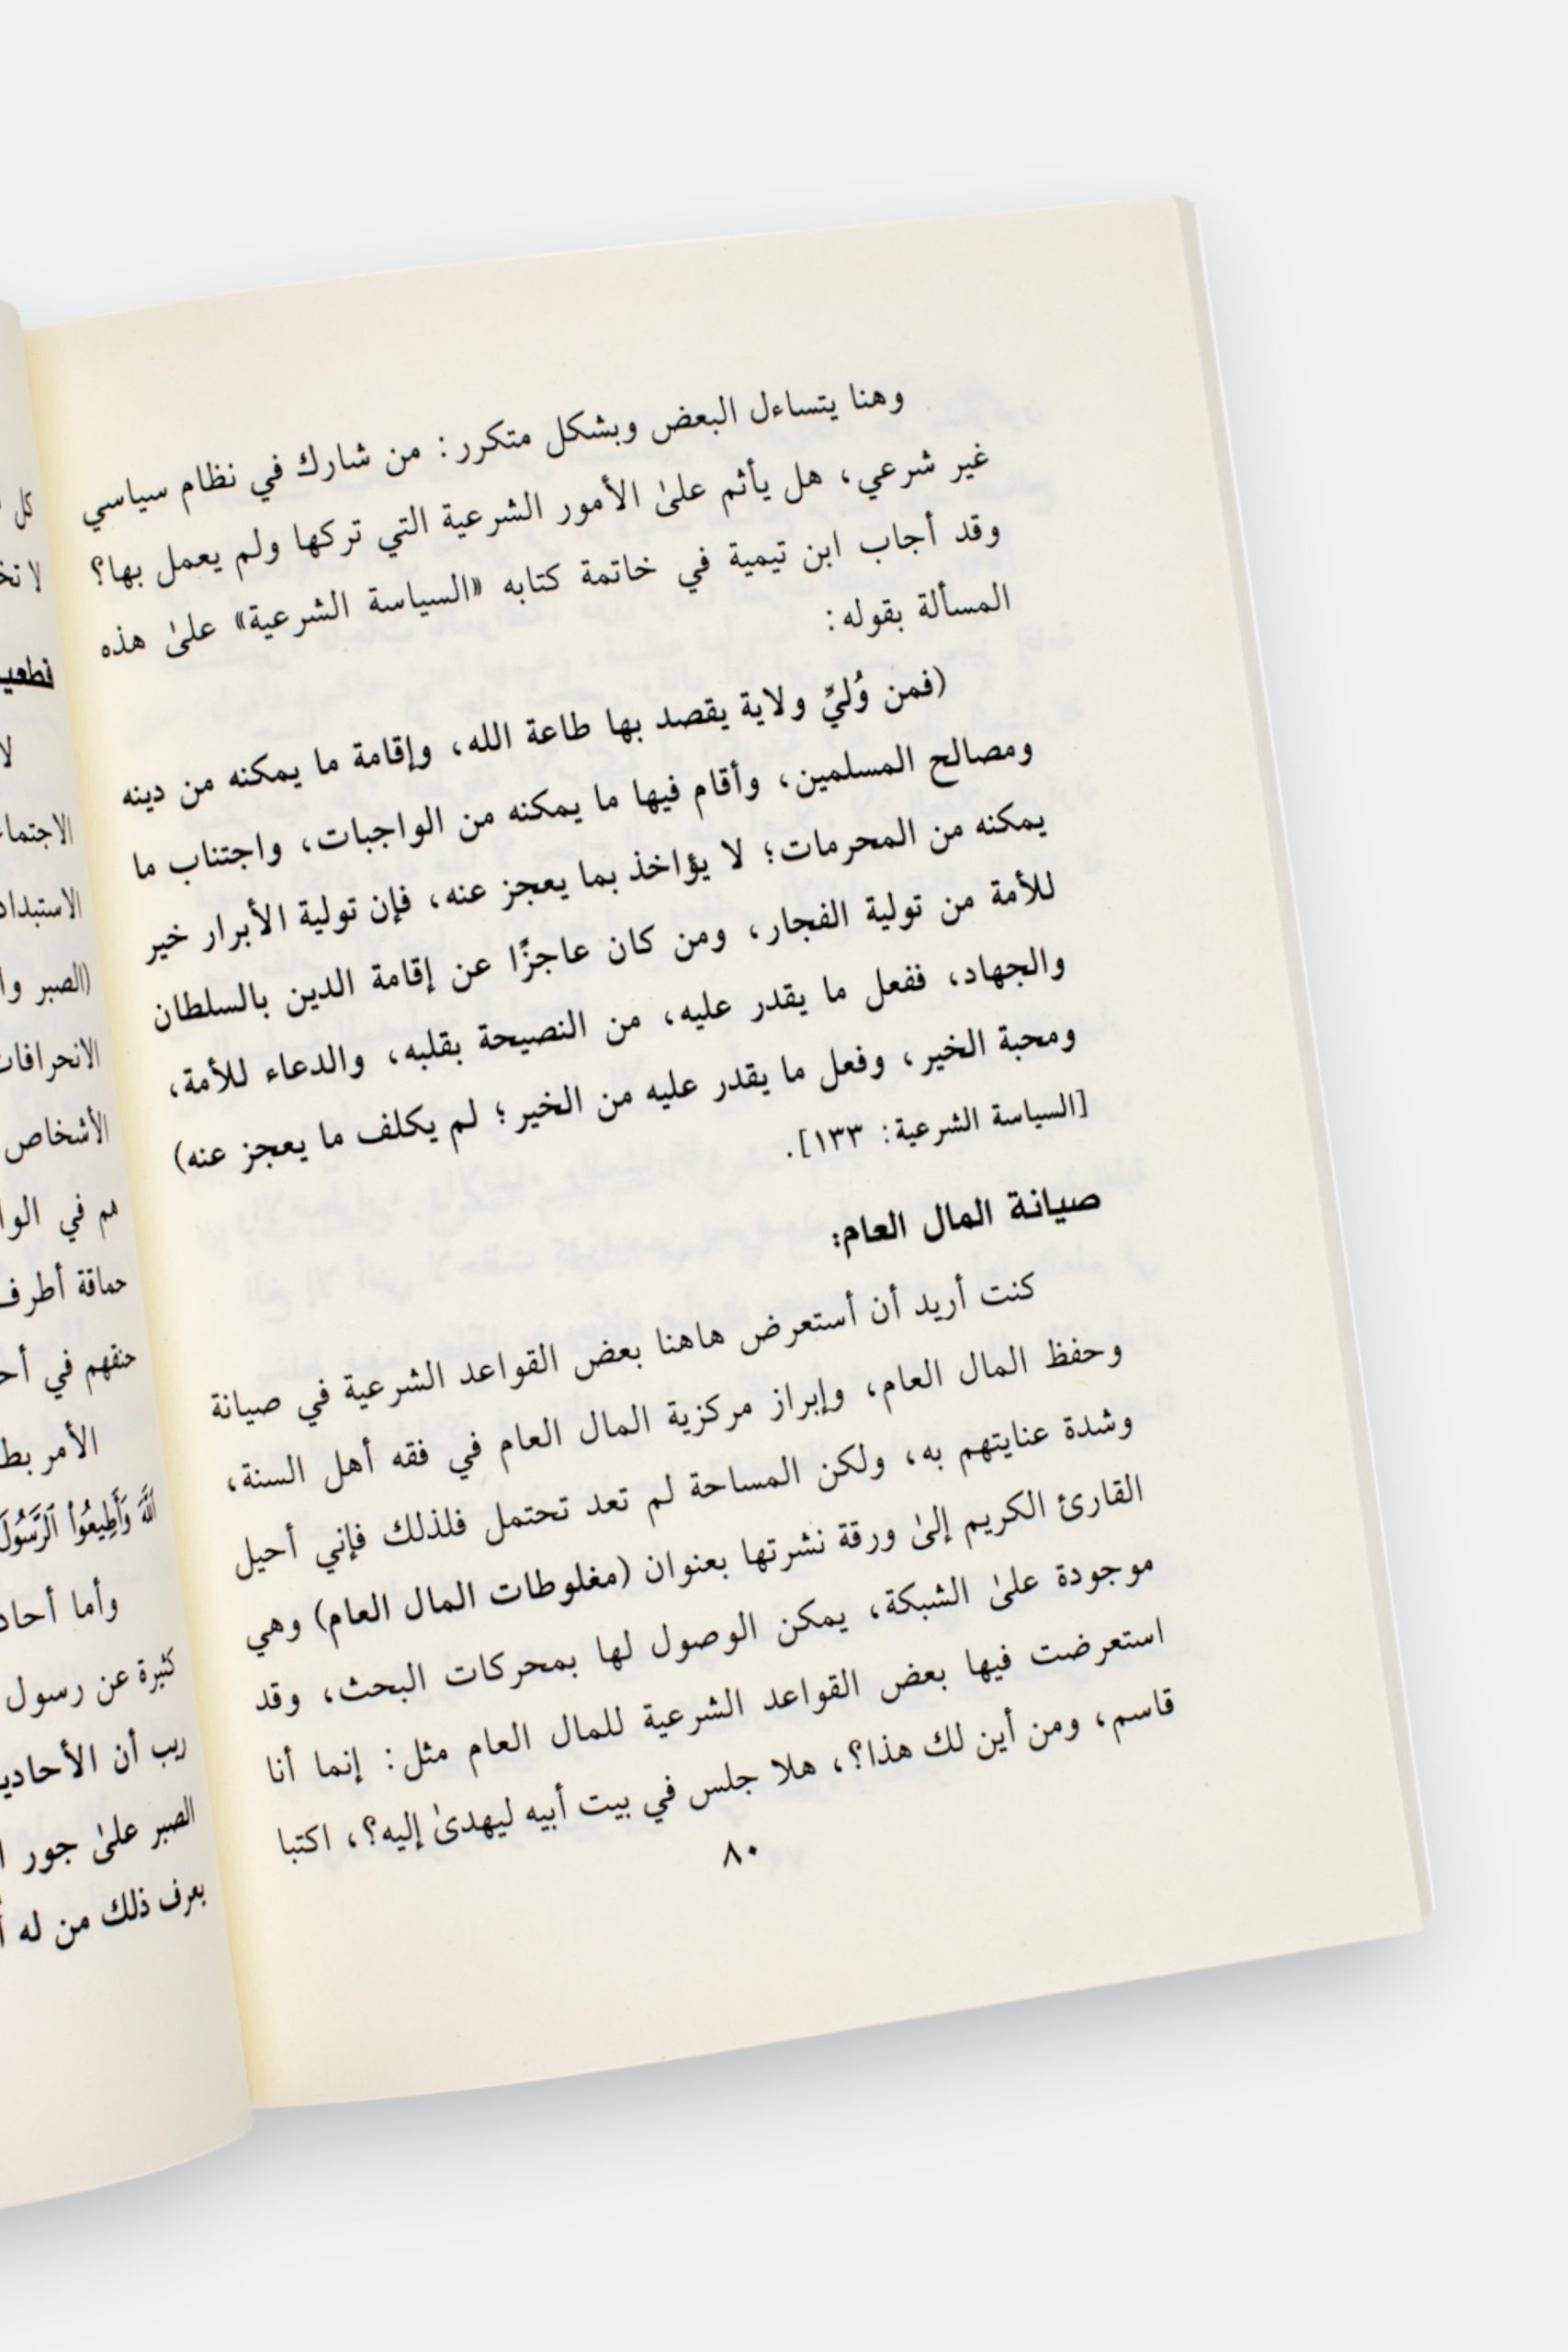 وهنا يتساءل البعض وبشكل متكرر: من شارك في نظام سياسي
غير شرعي، هل يأثم علىٰ الأمور الشرعية التي تركها ولم يعمل بها؟
وقد أجاب ابن تيمية في خاتمة كتابه «السياسة الشرعية» علىٰ هذه
المسألة بقوله:
(فمن وُليِّ ولاية يقصد بها طاعة الله، وإقامة ما يمكنه من دينه
ومصالح المسلمين، وأقام فيها ما يمكنه من الواجبات، واجتناب ما
يمكنه من المحرمات؛ لا يؤاخذ بما يعجز عنه، فإن تولية الأبرار خير
للأمة من تولية الفجار، ومن كان عاجزًا عن إقامة الدين بالسلطان
والجهاد، ففعل ما يقدر عليه، من النصيحة بقلبه، والدعاء للأمة،
ومحبة الخير، وفعل ما يقدر عليه من الخير؛ لم يكلف ما يعجز عنه)
[السياسة الشرعية: ١٣٣].
صيانة المال العام:
كنت أريد أن أستعرض هاهنا بعض القواعد الشرعية في صيانة
وحفظ المال العام، وإبراز مركزية المال العام في فقه أهل السنة،
وشدة عنايتهم به، ولكن المساحة لم تعد تحتمل فلذلك فإني أحيل
القارئ الكريم إلىٰ ورقة نشرتها بعنوان (مغلوطات المال العام) وهي
موجودة علىٰ الشبكة، يمكن الوصول لها بمحركات البحث، وقد
استعرضت فيها بعض القواعد الشرعية للمال العام مثل: إنما أنا
قاسم، ومن أين لك هذا؟، هلا جلس في بيت أبيه ليهدىٰ إليه؟، اكتبا
٨٠
كل
لا
الاستبداد
(الصبر
الأشخاص
هم في
حماقة
حنقهم في
الأمر
ٱللَّهَ وَأَطِيعُوا۟ ٱلرَّسُولَ
وأما
كثيرة عن رسول
ريب أن
الصبر علىٰ جور
يعرف ذلك من له